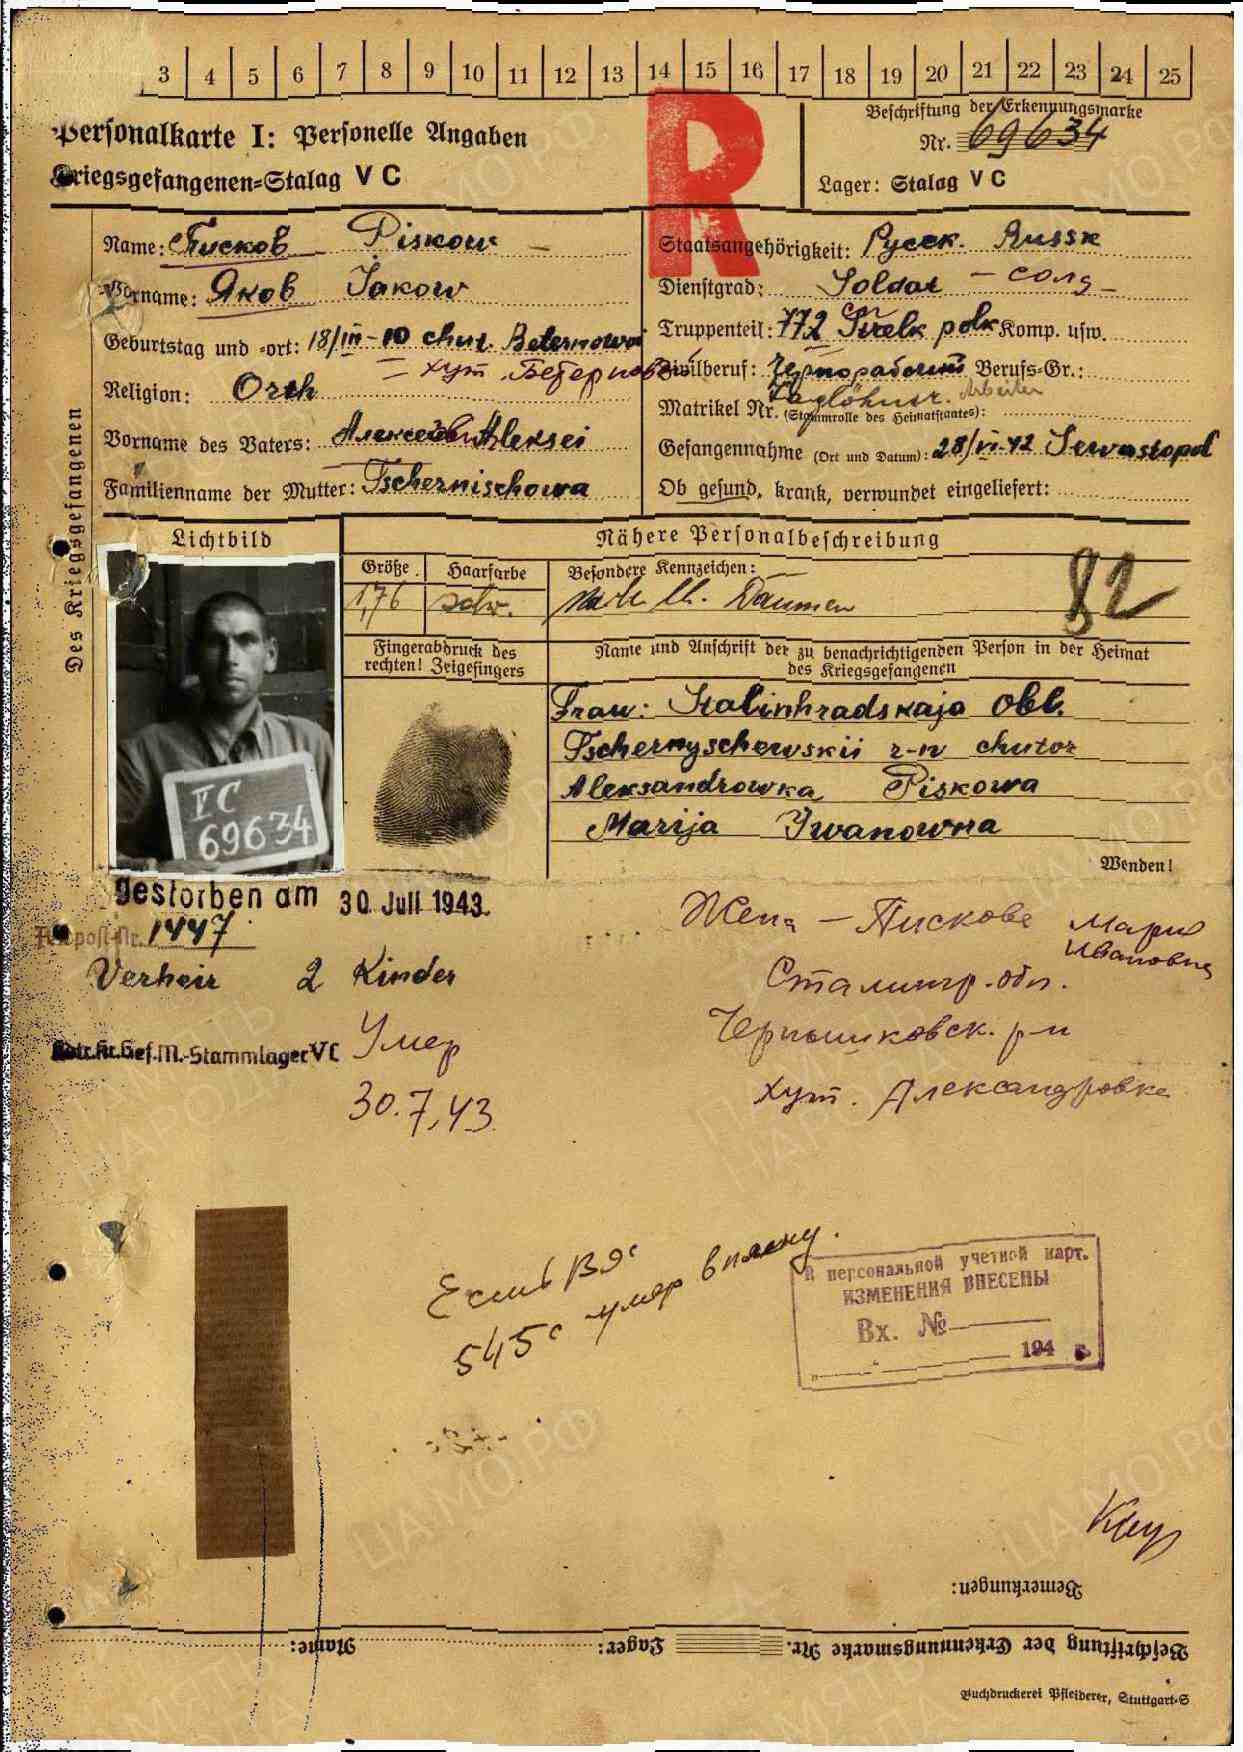 3 4 5 6 7 8 9 10 11 12 13 14 15 16 17 18 19 20 21 22 23 24 25
R
Personalkarte I: Personelle Angaben
Kriegsgefangenen=Stalag V C
Beschriftung der Erkennungsmarke
Nr. 69634
Lager: Stalag V C
Des Kriegsgefangenen
Name: Писков Piskow
Vorname: Яков Jakow
Geburtstag und =ort: 18/III-10 chut. Beternowoi
хут.
Religion: Orth
Vorname des Vaters: Алексей Aleksei
Familienname der Mutter: Tschernischowa
Staatsangehörigkeit: Русск. Russk
Dienstgrad: Soldat – солд
Truppenteil: 772 Strelk polk Komp. usw.
Zivilberuf: Чернорабочий Berufs=Gr.:
Arbeiter
Matrikel Nr. (Stammrolle des Heimatstaates):
Gefangennahme (Ort und Datum): 28/VI-42 Sewastopol
Ob gesund, krank, verwundet eingeliefert:
Lichtbild
Nähere Personalbeschreibung
Größe
Haarfarbe
Besondere Kennzeichen:
1,76
schw.
Daumen
82
Fingerabdruck des
rechten! Zeigefingers
Name und Anschrift der zu benachrichtigenden Person in der Heimat
des Kriegsgefangenen
Frau: Stalinhradskaja Obl.
Tschernyschewskii r-n chutor
Aleksandrowka Piskowa
Marija Iwanowna
Wenden!
V C
69634
gestorben am 30. Juli 1943.
Feldpost-Nr. 1447
Verheir 2 Kinder
Kdtr.Kr.Gef.M.-Stammlager V C
Умер
30.7.43
Жена – Пискова Мария
Ивановна
Сталингр. обл.
Чернышковск. р-н
хут. Александровка
545с умер в плену.
В персональной учетной карт.
ИЗМЕНЕНИЯ ВНЕСЕНЫ
Вх. №
194 г.
Bemerkungen:
Name: Lager: Beschriftung der Erkennungsmarke Nr.
Buchdruckerei Pfleiderer, Stuttgart-S
ПАМЯТЬ НАРОДА
ЦАМО.РФ